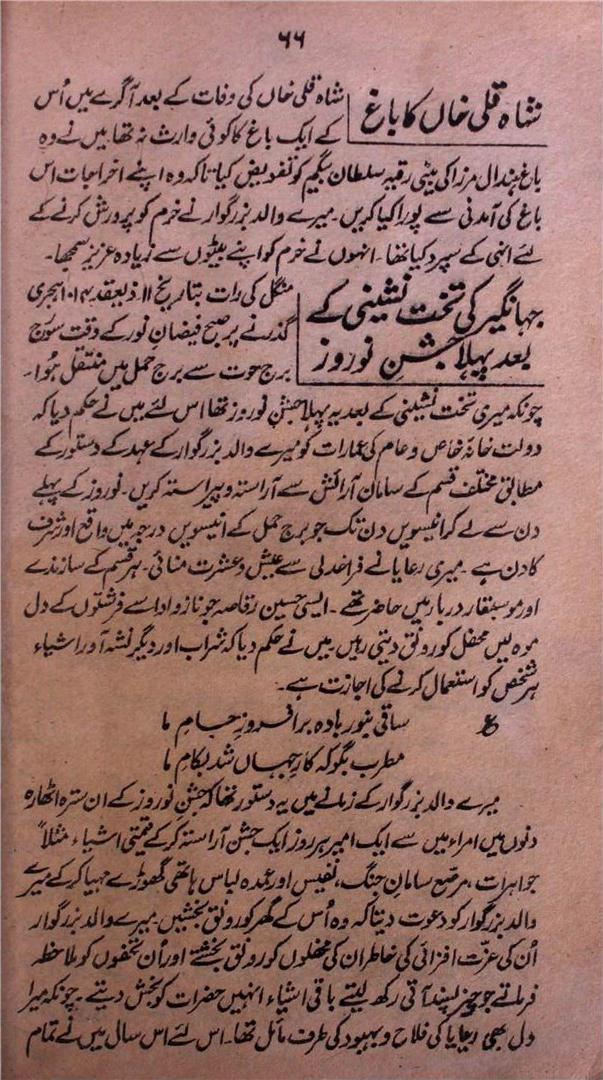 ۶۶
شاہ قلی خاں کا باغ
شاہ قلی خاں کی وفات کے بعد آگرے میں اُس
کے ایک باغ کا کوئی وارث نہ تھا۔ میں نے وہ
باغ ہندال مرزا کی بیٹی رقیہ سلطان بیگم کو تفویض کیا تاکہ وہ اپنے اخراجات اس
باغ کی آمدنی سے پورا کیا کریں۔ میرے والد بزرگوار نے خرم کو پرورش کرنے کے
لئے انہی کے سپرد کیا تھا۔ انہوں نے خرم کو اپنے بیٹوں سے زیادہ عزیز سمجھا۔
جہانگیر کی تخت نشینی کے
بعد پہلا جشنِ نوروز
منگل کی رات بتاریخ ۱۱۔ ذیعقد ۱۰۱۴ ہجری
گذرنے پر صبح فیضانِ نور کے وقت سورج
برج حوت سے برج حمل میں منتقل ہُوا۔
چونکہ میری تخت نشینی کے بعد یہ پہلا جشنِ نوروز تھا اس لئے میں نے حکم دیا کہ
دولت خانۂ خاص و عام کی عمارات کو میرے والد بزرگوار کے عہد کے دستور کے
مطابق مختلف قسم کے سامان آرائش سے آراستہ و پیراستہ کریں۔ نوروز کے پہلے
دن سے لے کر انیسویں دن تک جو برج حمل کے انیسویں درجہ میں واقع اور شرف
کا دن ہے۔ میری رعایا نے فراخدلی سے عیش و عشرت منائی۔ ہر قسم کے سازندے
اور موسیقار دربار میں حاضر تھے۔ ایسی حسین رقاصہ جو ناز و ادا سے فرشتوں کے دل
موہ لیں محفل کو رونق دیتی رہیں۔ میں نے حکم دیا کہ شراب اور دیگر نشہ آور اشیاء
ہر شخص کو استعمال کرنے کی اجازت ہے۔
ساقی بنور بادہ برافروز جامِ ما
مطرب بگو کہ کارِ جہاں شد بکامِ ما
میرے والد بزرگوار کے زمانے میں یہ دستور تھا کہ جشنِ نوروز کے ان سترہ اٹھارہ
دنوں میں امراء میں سے ایک امیر ہر روز ایک جشن آراستہ کر کے قیمتی اشیاء مثلاً
جواہرات، مرصع سامانِ جنگ، نفیس اور عمدہ لباس ہاتھی گھوڑے مہیا کر کے میرے
والد بزرگوار کو دعوت دیتا کہ وہ اُس کے گھر کو رونق بخشیں۔ میرے والد بزرگوار
اُن کی عزّت افزائی کی خاطر ان کی محفلوں کو رونق بخشتے اور اُن تحفوں کو ملاحظہ
فرماتے جو چیز پسند آتی رکھ لیتے باقی اشیاء انہیں حضرات کو بخش دیتے۔ چونکہ میرا
دل بھی رعایا کی فلاح و بہبود کی طرف مائل تھا۔ اس لئے اس سال میں نے تمام